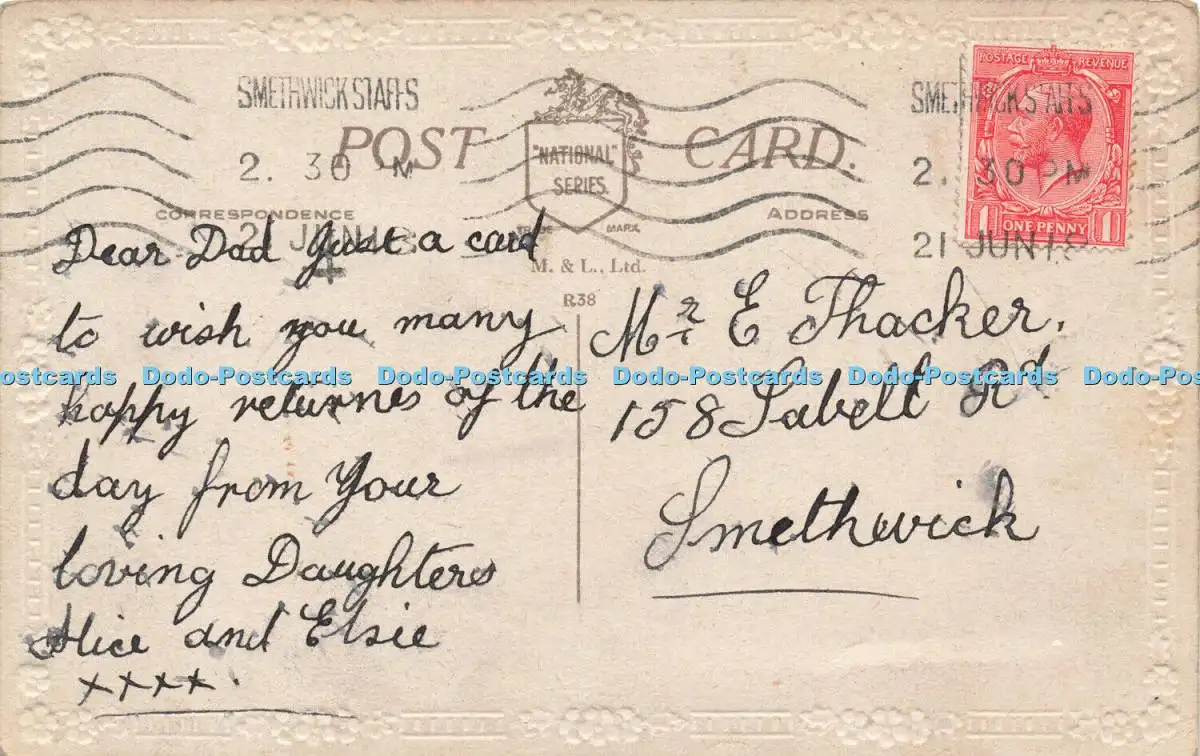 SMETHWICK STAFFS
2. 30 PM
21 JUN 18
SMETHWICK STAFFS
2. 30 PM
21 JUN 18
POSTAGE REVENUE
1 ONE PENNY 1
POST CARD.
"NATIONAL" SERIES.
TRADE MARK
CORRESPONDENCE
ADDRESS
M. & L., Ltd.
R38
Dear Dad Just a card
to wish you many
happy returnes of the
day from Your
loving Daughters
Alice and Elsie
xxxx.
Mr E Thacker,
158 Sabell Rd
Smethwick
Postcards Dodo-Postcards Dodo-Postcards Dodo-Postcards Dodo-Postcards Dodo-Po